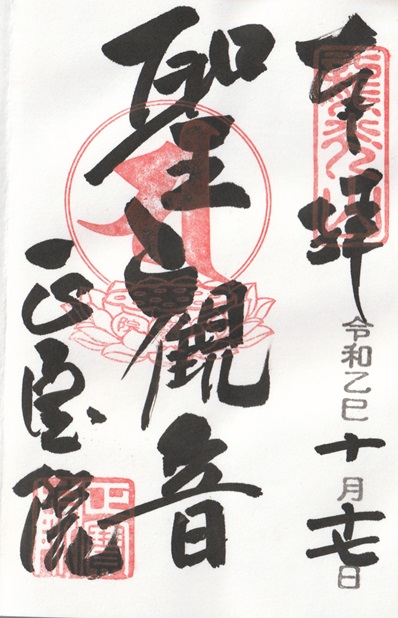 奉拝
令和乙巳十月十七日
聖観音
正宝院